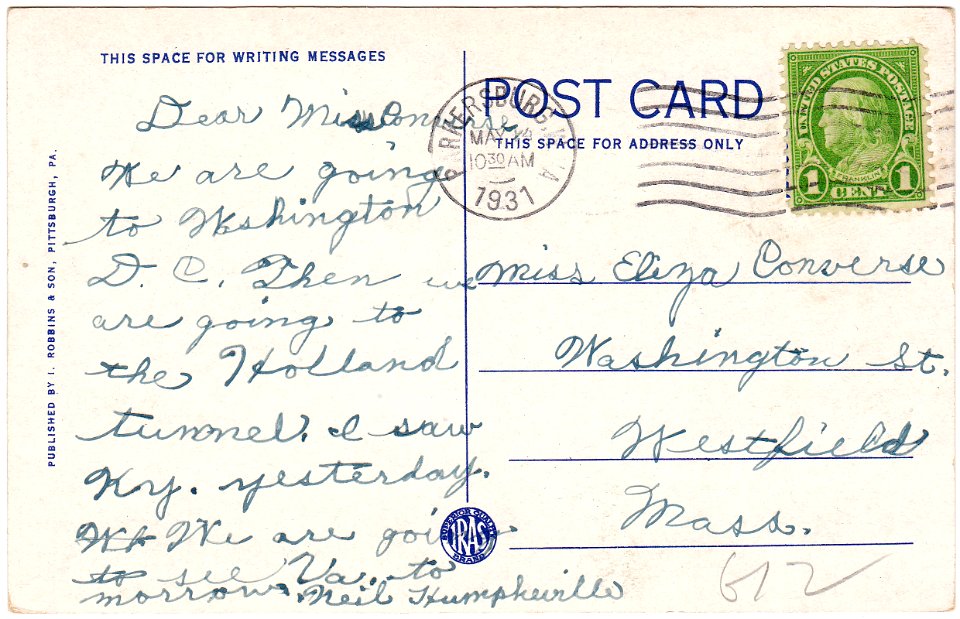 THIS SPACE FOR WRITING MESSAGES
Dear Miss Converse
We are going
to Washington
D. C. Then we
are going to
the Holland
tunnel. I saw
Ky. yesterday.
We are goi
to see Va. to
morrow. Neil Humpheville
PUBLISHED BY I. ROBBINS & SON, PITTSBURGH, PA.
POST CARD
THIS SPACE FOR ADDRESS ONLY
PARKERSBURG, W. VA
MAY
10 30 AM
1931
UNITED STATES POSTAGE
FRANKLIN
1 CENT 1
Miss Eliza Converse
Washington St.
Westfield
Mass.
612
SUPERIOR QUALITY
IRAS
BRAND